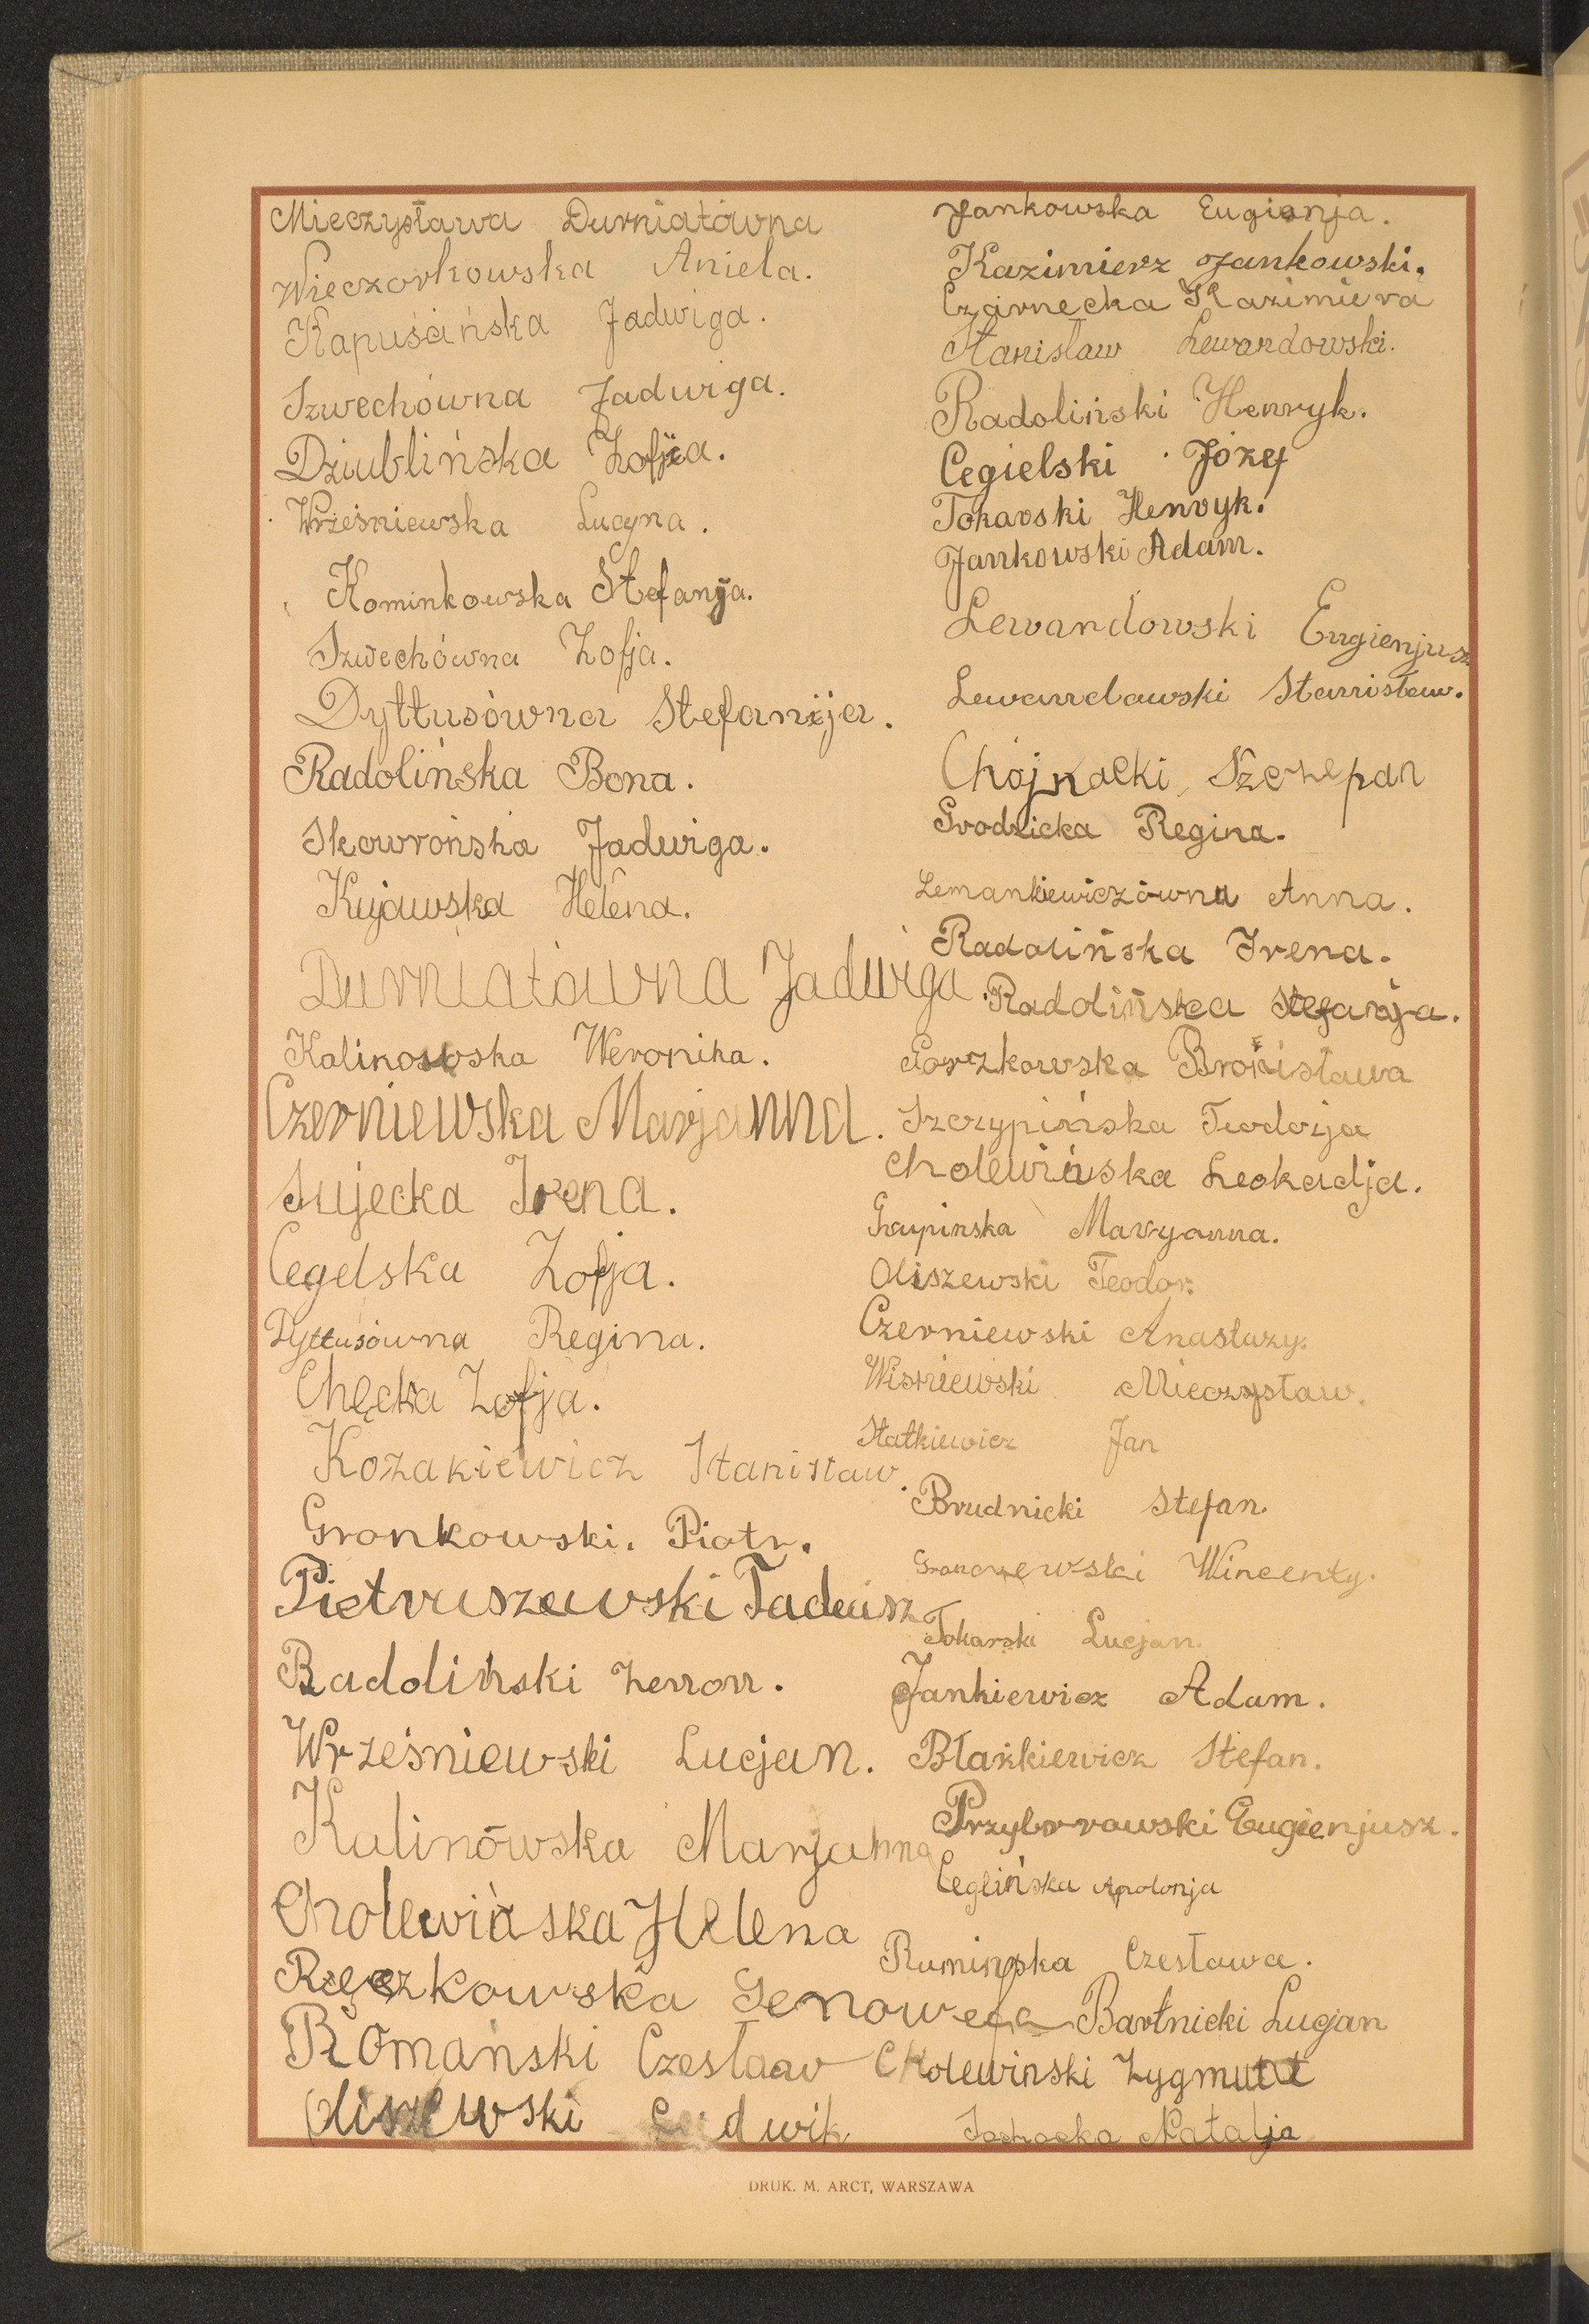 Mieczysława Durniatówna
Wieczorkowska Aniela.
Kapuścińska Jadwiga.
Szwechówna Jadwiga.
Dziublińska Zofja.
Wrześniewska Lucyna.
Kominkowska Stefanja.
Szwechówna Zofja.
Dyttusówna Stefanija.
Radolińska Bona.
Skowrońska Jadwiga.
Kujawska Helena.
Durniatówna Jadwiga.
Kalinowska Weronika.
Czerniewska Marjanna.
Sujecka Irena.
Cegelska Zofja.
Dyttusówna Regina.
Chęcka Zofja.
Kozakiewicz Stanisław.
Gronkowski. Piotr.
Pietruszewski Tadeusz
Radoliński Zenon.
Wrześniewski Lucjan.
Kalinówska Marjanna
Cholewińska Helena
Ręczkowska Genowefa
Romański Czesław
Oliszewski Ludwik
Jankowska Eugienja.
Kazimierz Jankowski.
Czarnecka Kazimiera
Stanisław Lewandowski.
Radoliński Henryk.
Cegielski Józef
Tokarski Henryk.
Jankowski Adam.
Lewandowski Eugienjusz
Lewandowski Stanisław.
Chojnacki Szczepan
Grodzicka Regina.
Lemankiewiczówna Anna.
Radolińska Irena.
Radolińska Stefanja.
Gorzkowska Bronisława
Szczypińska Teodozja
Cholewińska Leokadja.
Maryanna.
Oliszewski Teodor.
Czerniewski Anastazy.
Wisniewski Mieczysław.
Statkiewicz Jan
Brudnicki Stefan.
Wincenty.
Tokarski Lucjan.
Jankiewicz Adam.
Błaszkiewicz Stefan.
Przyborowski Eugienjusz.
Ceglińska Apolonja
Ruminska Czesława.
Bartnicki Lucjan
Cholewinski Zygmunt
Natalja
DRUK. M. ARCT, WARSZAWA